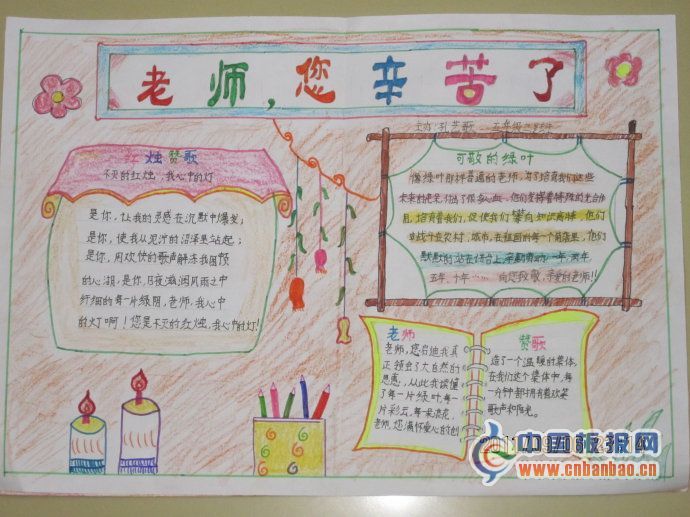 老师,您辛苦了
主办:孔艺歌 五年级
红烛赞歌
不灭的红烛,我心中的灯
是你,让我的灵感在沉默中爆发;
是你,使我从泥泞的沼泽里站起;
是你,用欢快的歌声解冻我国顿
的心湖,是你,日夜滋润风雨之中
纤细的每一片绿阴,老师,我心中
的灯啊!您是不灭的红烛,我心中的灯!
可敬的绿叶
像绿叶那样普通的老师,为了培育我们这些
未来的花朵,付出了很多心血,他们发挥着特殊的光合作
用,培育着我们,促使我们攀向知识高峰,他们
奋战在农村,城市,在祖国的每一个角落里,他们
默默的站在讲台上,辛勤劳动一年,两年,
五年、十年……向您致敬,亲爱的老师!!
老师
老师,您启迪我真
正领会了大自然的
恩惠,从此我读懂
了每一片绿叶每一
片彩云,每一朵浪花,
老师,您满怀爱心的创
赞歌
造了一个温暖的集体,
在我们这个集体中,每
一分钟都拥有着欢笑
歌声和阳光。
中国板报网
www.cnbanbao.cn